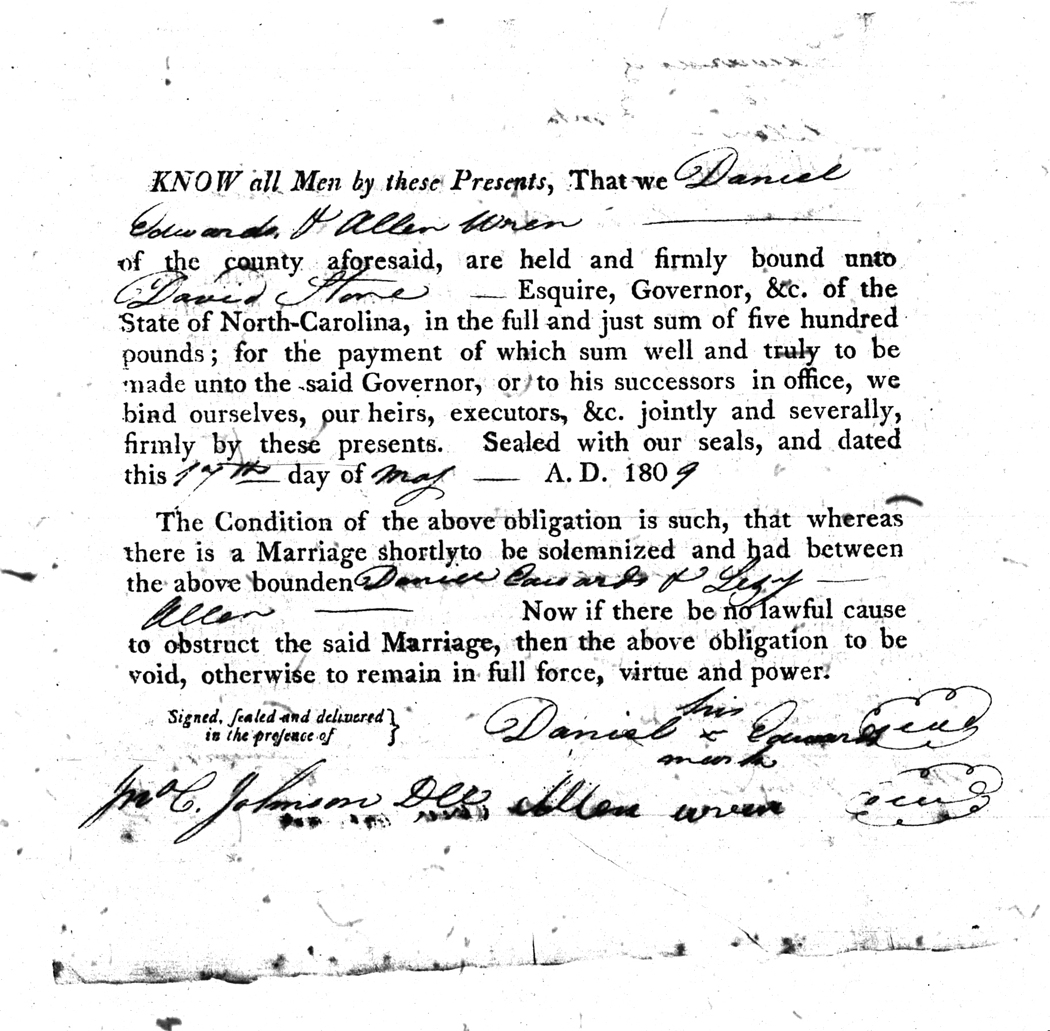 KNOW all Men by these Presents, That we Daniel
Edwards & Allen Wren
of the county aforesaid, are held and firmly bound unto
David Stone — Esquire, Governor, &c. of the
State of North-Carolina, in the full and just sum of five hundred
pounds; for the payment of which sum well and truly to be
made unto the said Governor, or to his successors in office, we
bind ourselves, our heirs, executors, &c. jointly and severally,
firmly by these presents. Sealed with our seals, and dated
this 17th day of May — A. D. 1809
The Condition of the above obligation is such, that whereas
there is a Marriage shortly to be solemnized and had between
the above bounden Daniel Edwards &
Allen — Now if there be no lawful cause
to obstruct the said Marriage, then the above obligation to be
void, otherwise to remain in full force, virtue and power.
Signed, ſealed and delivered }
in the preſence of
his
Daniel x Edwards seal
mark
Jno C. Johnson Allen wren seal